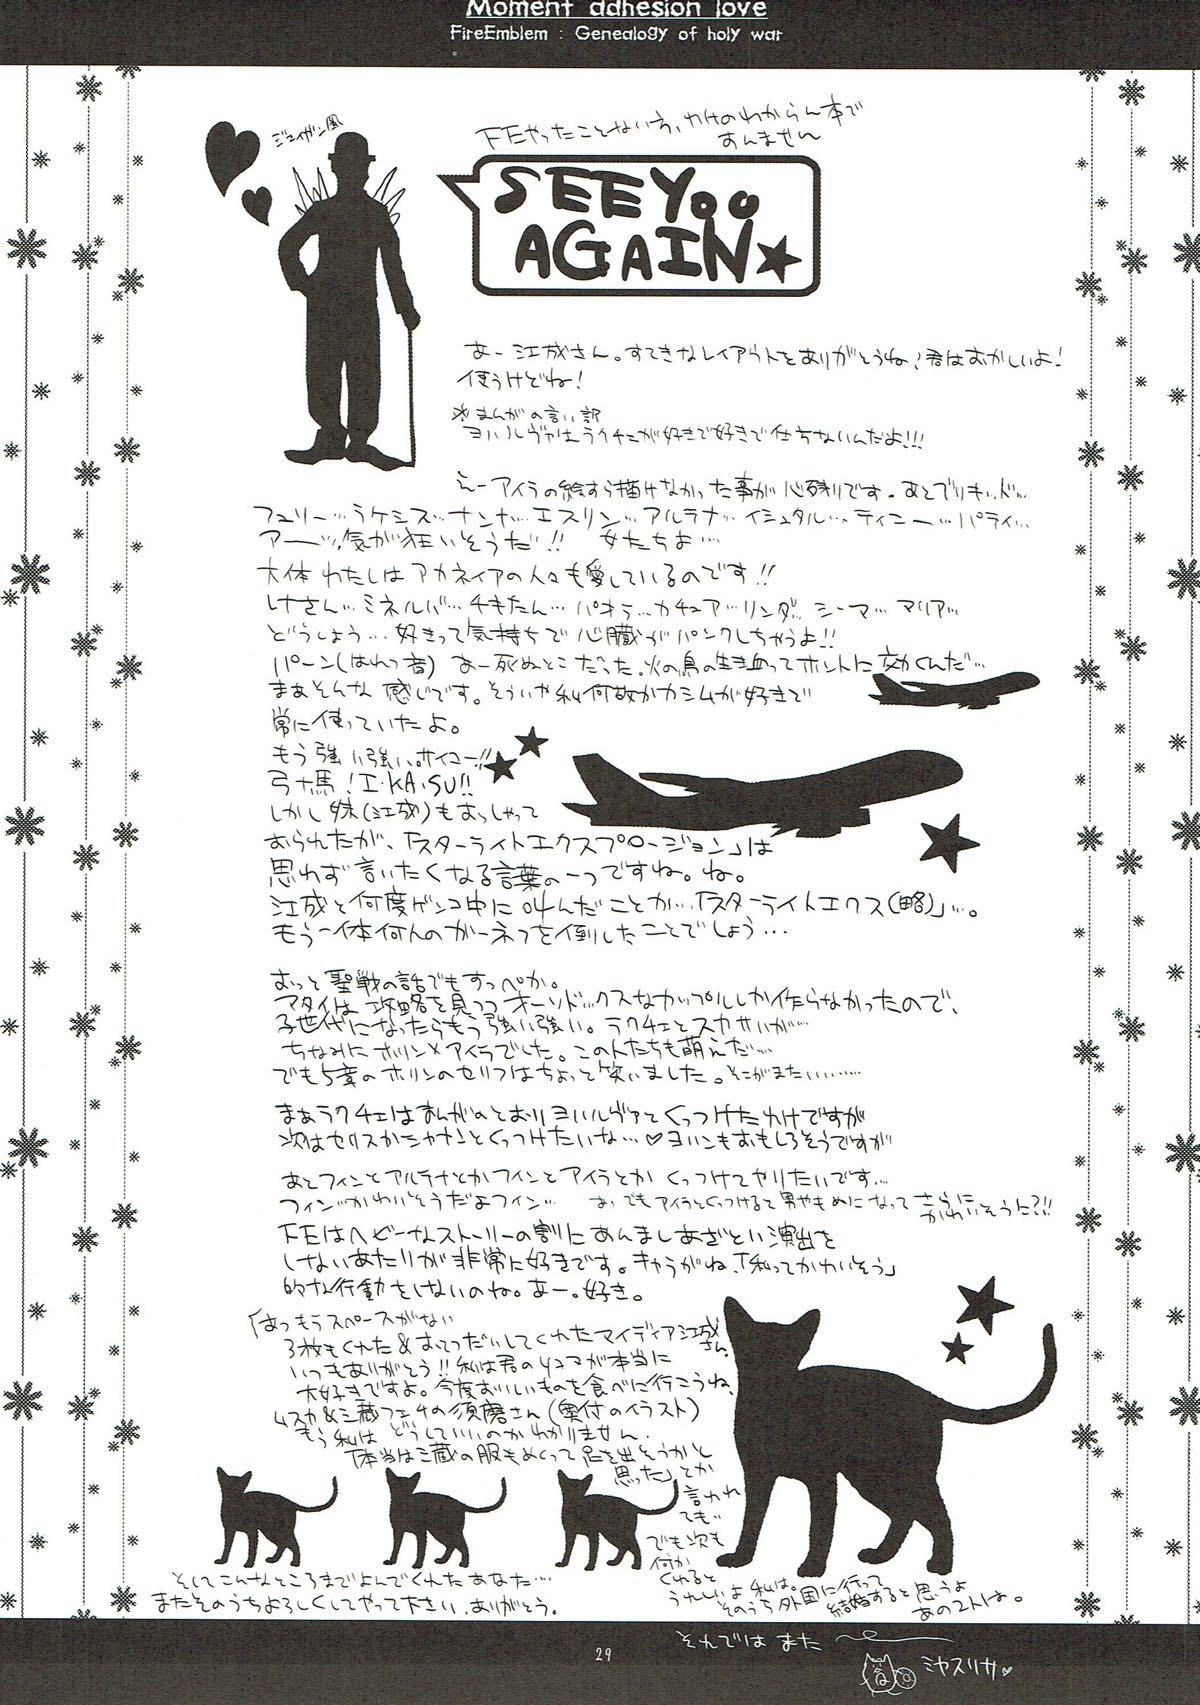 Moment adhesion love
FireEmblem : Genealogy of holy war
ジェイガン風
FEやったことない方、わけのわからん本で
あんません
SEE YOU
AGAIN★
あー江成さん。すてきなレイアウトをありがとうね！君はおかしいよ！
使うけどね！
＊まんがの言い訳
ヨハルヴァはラクチェが好きで好きで仕方ないんだよ!!!
えーアイラの絵すら描けなかった事が心残りです。あとブリギッド…
フュリー…ラケシス…ナンナ…エスリン…アルテナ…イシュタル…ティニー…パティ…
アーッ、気が狂いそうだ!! 女たちよ…
大体わたしはアカネイアの人々も愛しているのです!!
レナさん…ミネルバ…チキたん…パオラ…カチュア…リンダ…シーマ…マリア…
どうしよう…好きって気持ちで心臓がパンクしちゃうよ!!
パーン(はれつ音) あー死ぬとこだった。火の鳥の生き血ってホントに効くんだ…
まあそんな感じです。そういや私何故かカシムが好きで
常に使っていたよ。
もう強い強い。サイコー!!
弓+馬！I・KA・SU!!
しかし妹(江成)もおっしゃって
おられたが、「スターライトエクスプロージョン」は
思わず言いたくなる言葉の一つですね。ね。
江成と何度ゲンコ中に叫んだことか…「スターライトエクス(略)」…。
もう一体何人のガーネフを倒したことでしょう…
おっと聖戦の話でもすっぺか。
アタイは攻略を見つつオーソドックスなカップルしか作らなかったので、
子世代になったらもう強い強い。ラクチェとスカサハが…
ちなみにホリン×アイラでした。この人たちも萌えだ…
でも5章のホリンのセリフはちょっと笑いました。そこがまたいい………
まあラクチェはまんがのとおりヨハルヴァとくっつけたわけですが
次はセリスかシャナンとくっつけたいな…♡ヨハンもおもしろそうですが
あとフィンとアルテナとかフィンとアイラとかくっつけてやりたいです…
フィン…かわいそうだよフィン… あっでもアイラとくっつけると男やもめになってさらに
かわいそうに?!!
FEはヘビーなストーリーの割にあんましあざとい演出を
しないあたりが非常に好きです。キャラがね、「私ってかわいそう」
的な行動をしないのね。あー。好き。
はっもうスペースがない
3枚もくれた&おてつだいしてくれたマイディア江成
さん。
いつもありがとう!!私は君の4コマが本当に
大好きですよ。今度おいしいものを食べに行こうね、
ムスカ&三蔵フェチの須磨さん(奥付のイラスト)
もう私はどうしていいのかわかりません。
「本当は三蔵の服もめくって足を出そうかと
思った」とか
言われ
ても…
でも次も
何か
くれると
うれしいよ私は。
そのうち外国に行って
結婚すると思うよ
あの2人は。
そしてこんなところまでよんでくれたあなた…
またそのうちよろしくしてやって下さい。ありがとう。
29
それでは また
ミヤスリサ♡